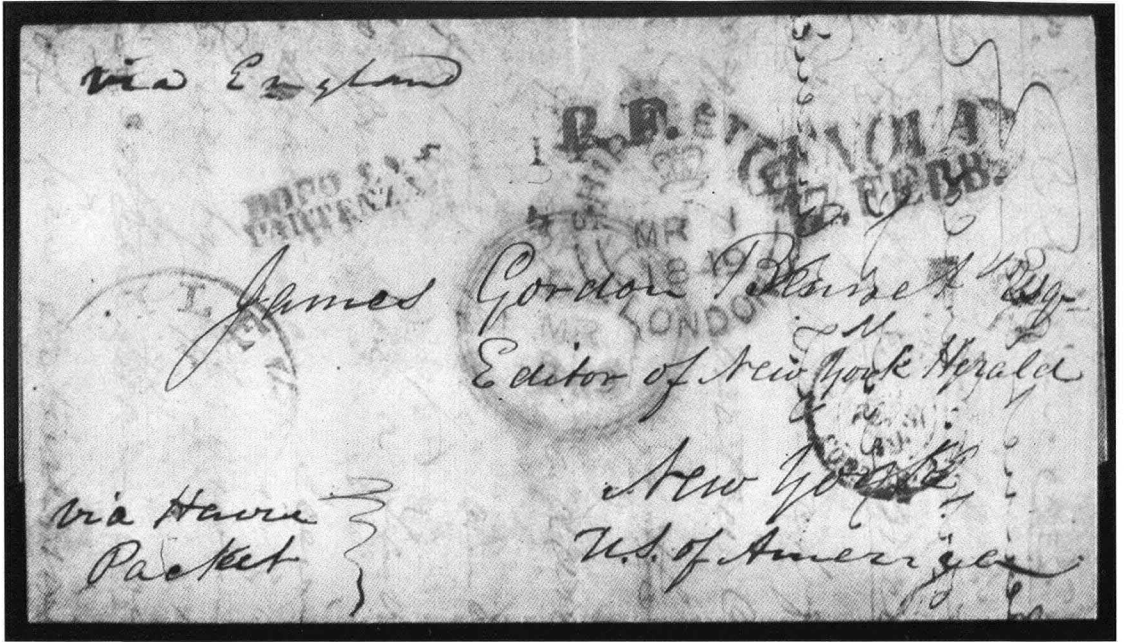 via England
P.F.
GENOVA
FEBB.
DOPO LA
PARTENZA
MR 1
LONDON
MR
James Gordon Bennet Esqr
Editor of New York Herald
New York
U.S. of America
via Havre
Packet